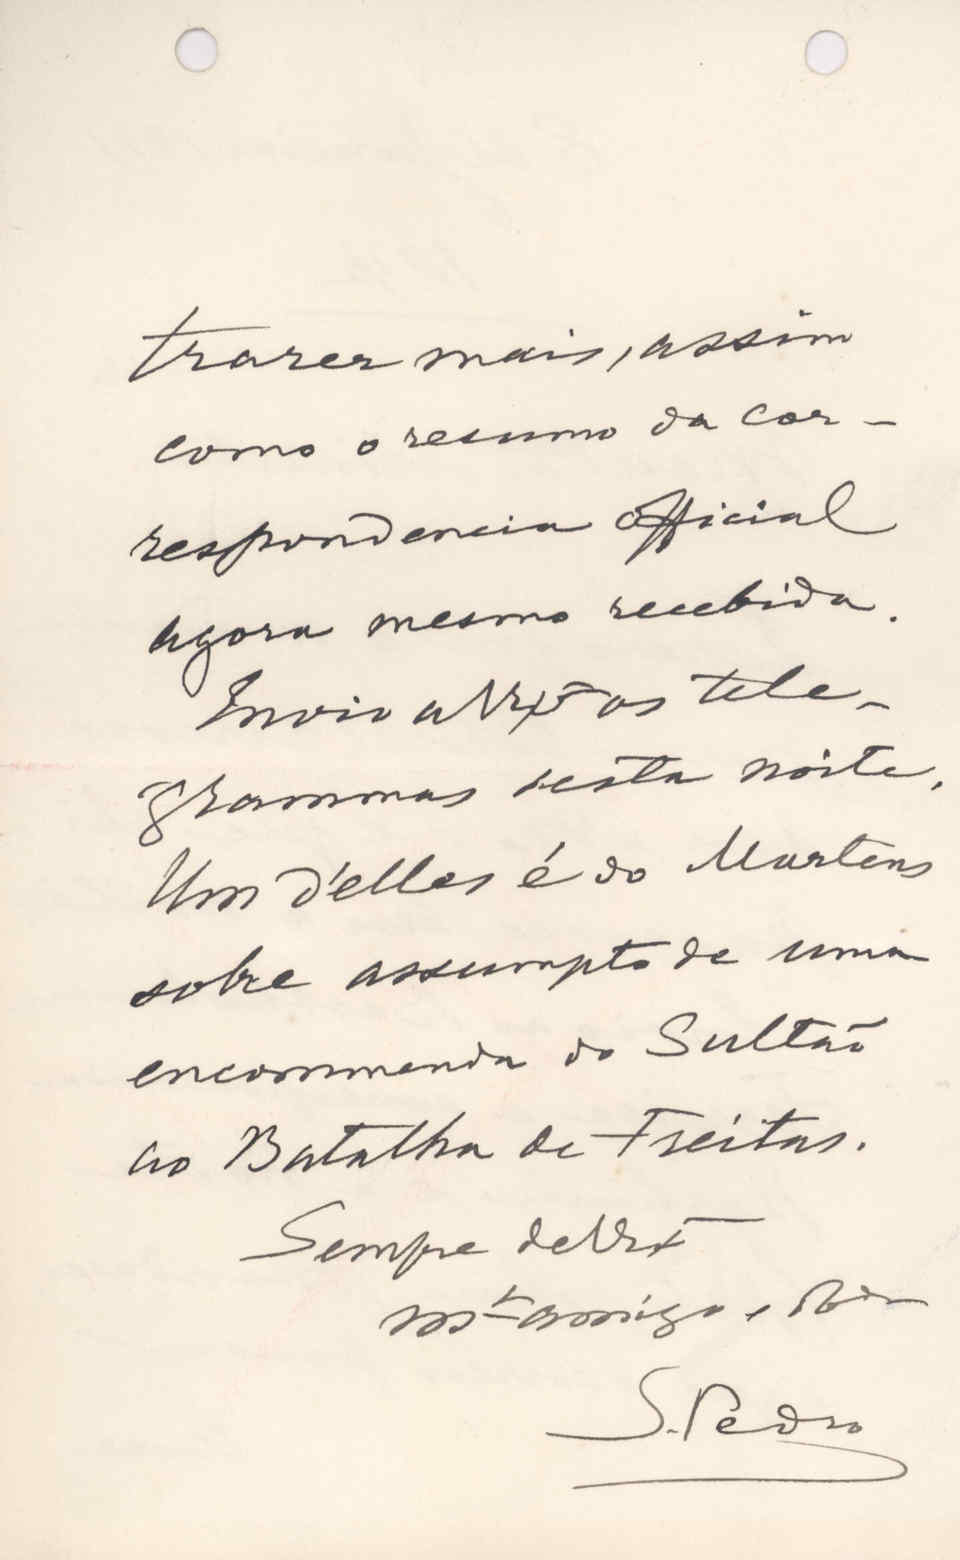 trazer mais, assim
como o resumo da cor-
respondencia official
agora mesmo recebida.
Envio a V. Ex.ª os tele-
grammas desta noite.
Um d'elles é do Martens
sobre assumpto de uma
encommenda do Sultão
ao Batalha de Freitas.
Sempre de V. Ex.ª
m.to amigo e
S. Pedro